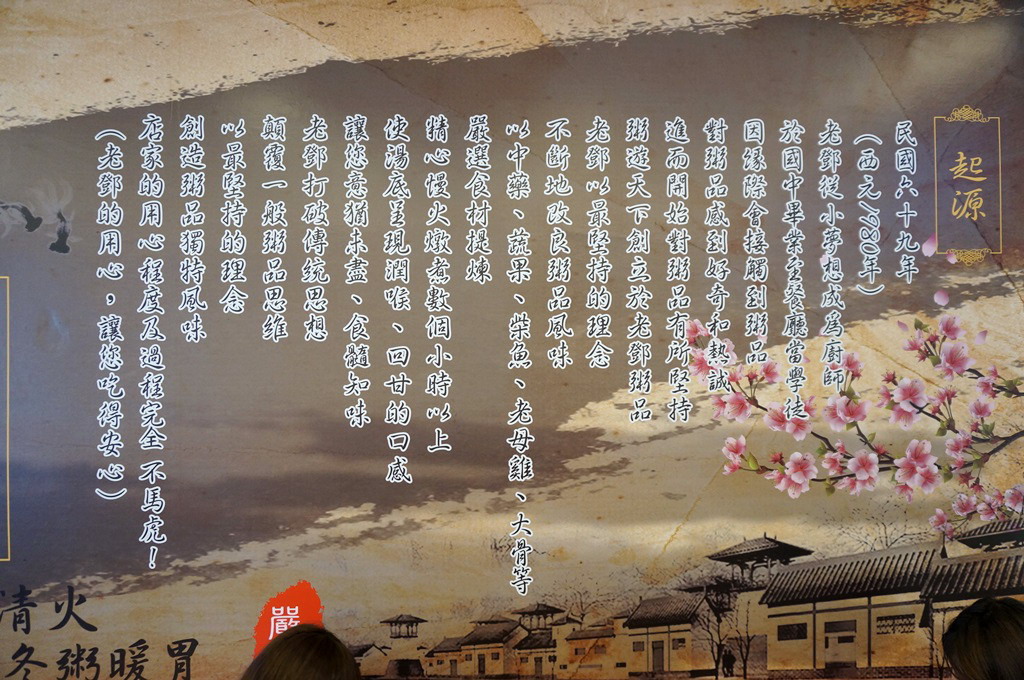 起源
民國六十九年
(西元1980年)
老鄧從小夢想成為廚師
於國中畢業至餐廳當學徒
因緣際會接觸到粥品
對粥品感到好奇和熱誠
進而開始對粥品有所堅持
粥遊天下創立於老鄧粥品
老鄧以最堅持的理念
不斷地改良粥品風味
以中藥、蔬果、柴魚、老母雞、大骨等
嚴選食材提煉
精心慢火燉煮數個小時以上
使湯底呈現潤喉、回甘的口感
讓您意猶未盡、食髓知味
老鄧打破傳統思想
顛覆一般粥品思維
以最堅持的理念
創造粥品獨特風味
店家的用心程度及過程完全不馬虎！
(老鄧的用心，讓您吃得安心)
嚴
清火
冬粥暖胃